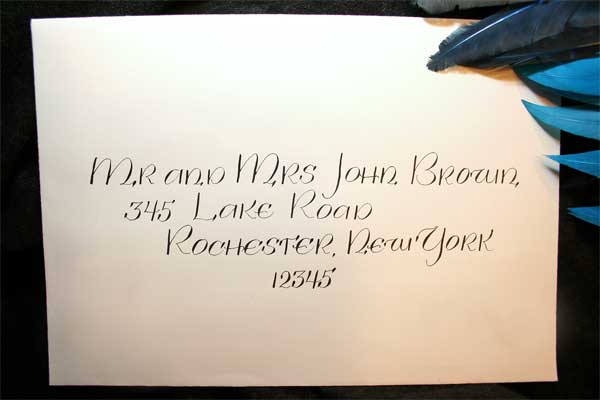 Mr and Mrs John Brown
345 Lake Road
Rochester, New York
12345